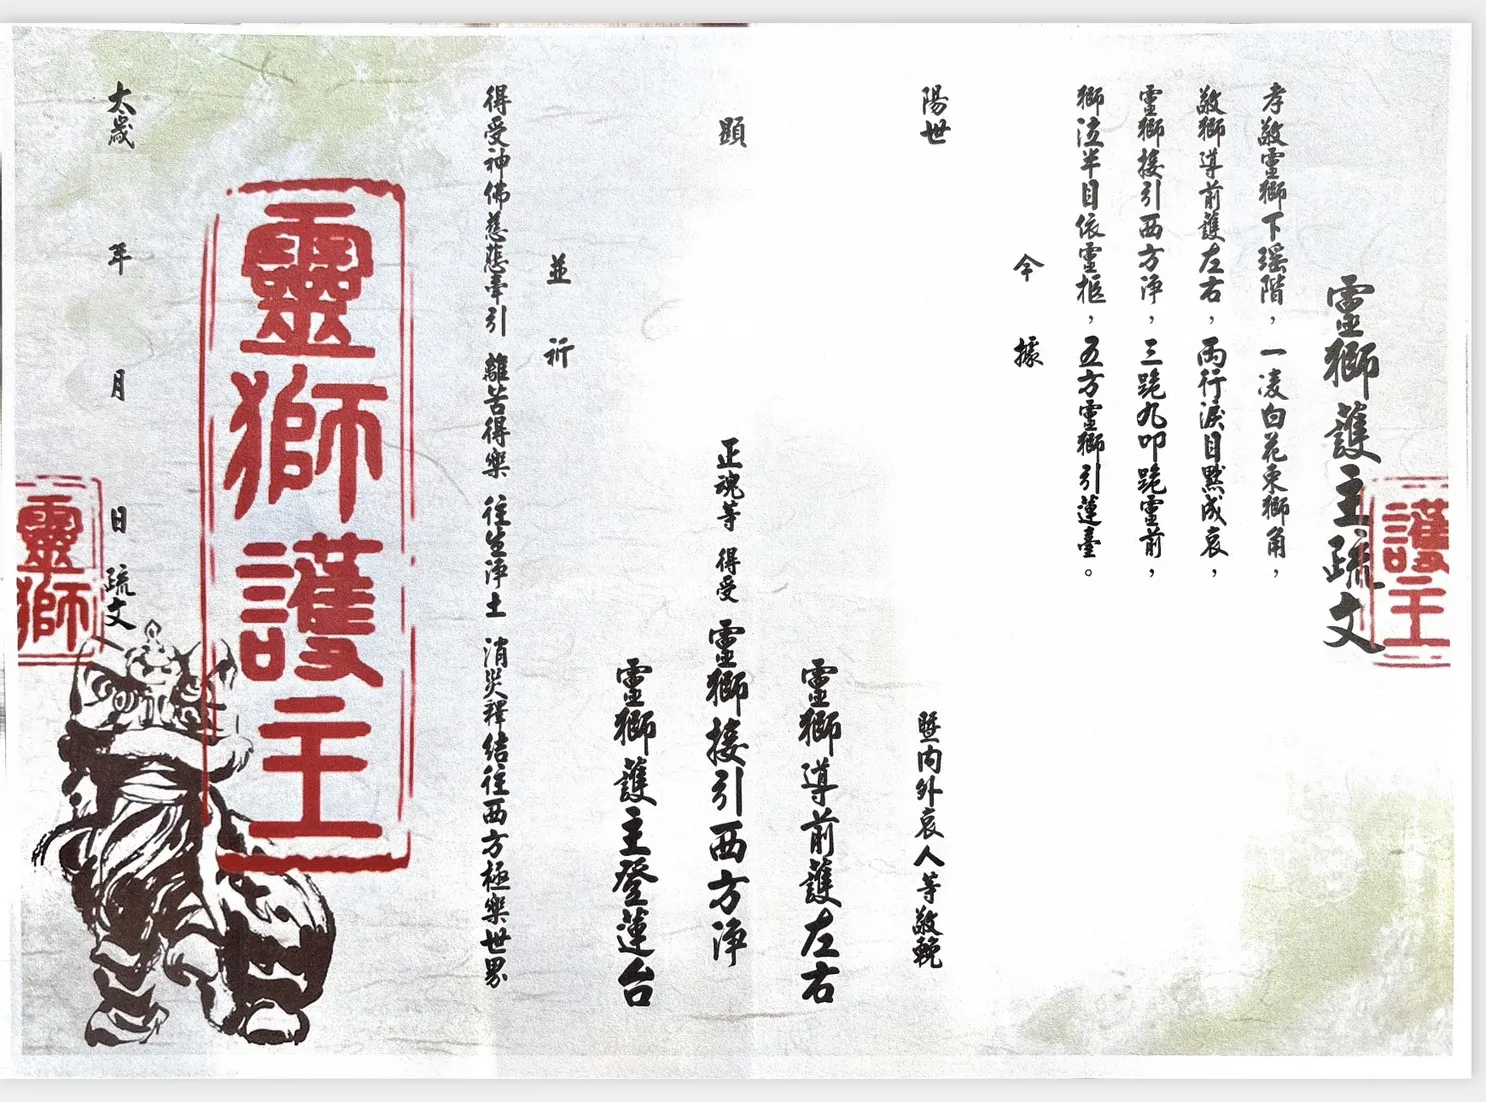 靈獅護主疏文
護主
孝敬靈獅下瑤階，一凌白花束獅角，
敬獅導前護左右，両行淚目默成哀，
靈獅接引西方淨，三跪九叩跪靈前，
獅泣半目依靈柩，五方靈獅引蓮臺。
今據
陽世 暨內外哀人等敬輓
靈獅導前護左右
顕 正魂等 得受 靈獅接引西方淨
靈獅護主登蓮台
並祈
得受神佛慈悲牽引 離苦得樂 往生淨土 消災釋結往西方極樂世界
靈獅護主
太歲 年 月 日 疏文
靈獅